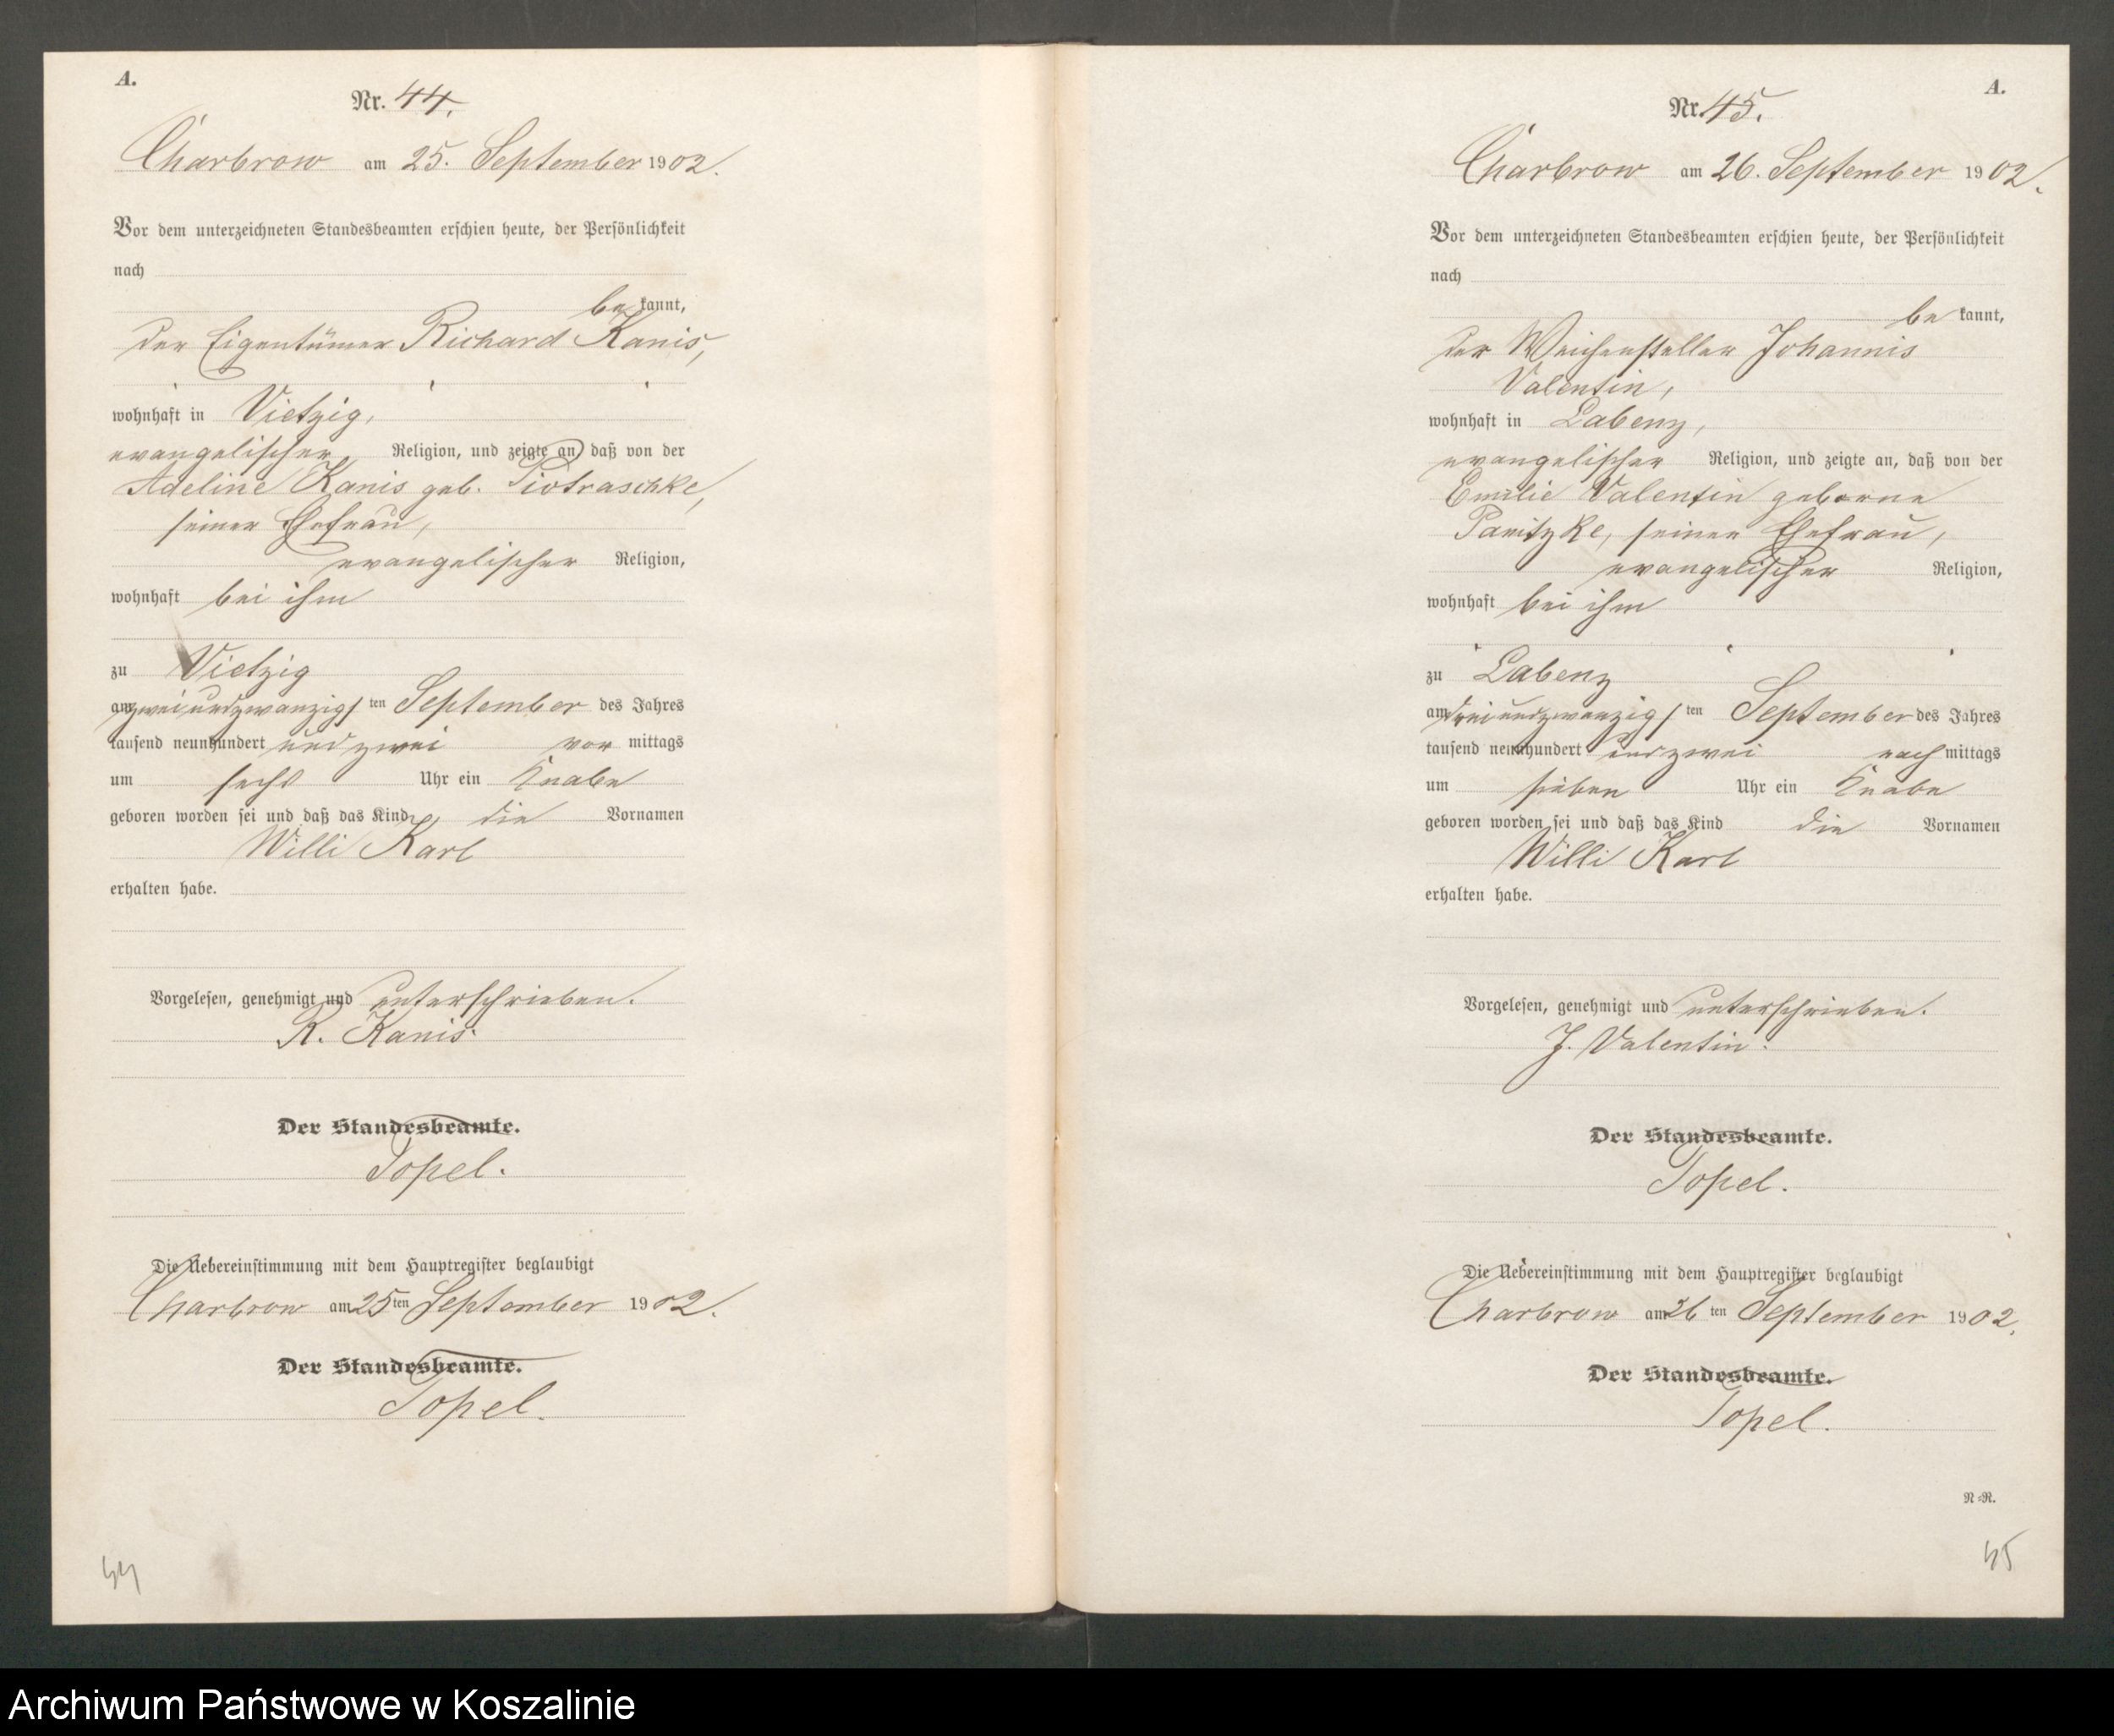 A.
Nr. 44.
Charbrow am 25. September 1902.
Vor dem unterzeichneten Standesbeamten erschien heute, der Persönlichkeit
nach
be kannt,
der Eigentümer Richard Kanis,
wohnhaft in Vietzig,
evangelischer Religion, und zeigte an, daß von der
Adeline Kanis geb. Piotraschke,
seiner Ehefrau,
evangelischer Religion,
wohnhaft bei ihm
zu Vietzig
am zweiundzwanzig ten September des Jahres
tausend neunhundert und zwei vor mittags
um sechs Uhr ein Knabe
geboren worden sei und daß das Kind die Vornamen
Willi Karl
erhalten habe.
Vorgelesen, genehmigt und unterschrieben.
R. Kanis.
Der Standesbeamte.
Topel.
Die Uebereinstimmung mit dem Hauptregister beglaubigt
Charbrow am 25 ten September 1902.
Der Standesbeamte.
Topel.
44
A.
Nr. 45.
Charbrow am 26. September 1902.
Vor dem unterzeichneten Standesbeamten erschien heute, der Persönlichkeit
nach
be kannt,
der Weichensteller Johannis
Valentin,
wohnhaft in Labenz,
evangelischer Religion, und zeigte an, daß von der
Emilie Valentin geborne
Panitzke, seiner Ehefrau,
evangelischer Religion,
wohnhaft bei ihm
zu Labenz
am dreiundzwanzig ten September des Jahres
tausend neunhundert und zwei nach mittags
um sieben Uhr ein Knabe
geboren worden sei und daß das Kind die Vornamen
Willi Karl
erhalten habe.
Vorgelesen, genehmigt und unterschrieben.
J. Valentin.
Der Standesbeamte.
Topel.
Die Uebereinstimmung mit dem Hauptregister beglaubigt
Charbrow am 26 ten September 1902.
Der Standesbeamte.
Topel.
N-R.
45
Archiwum Państwowe w Koszalinie